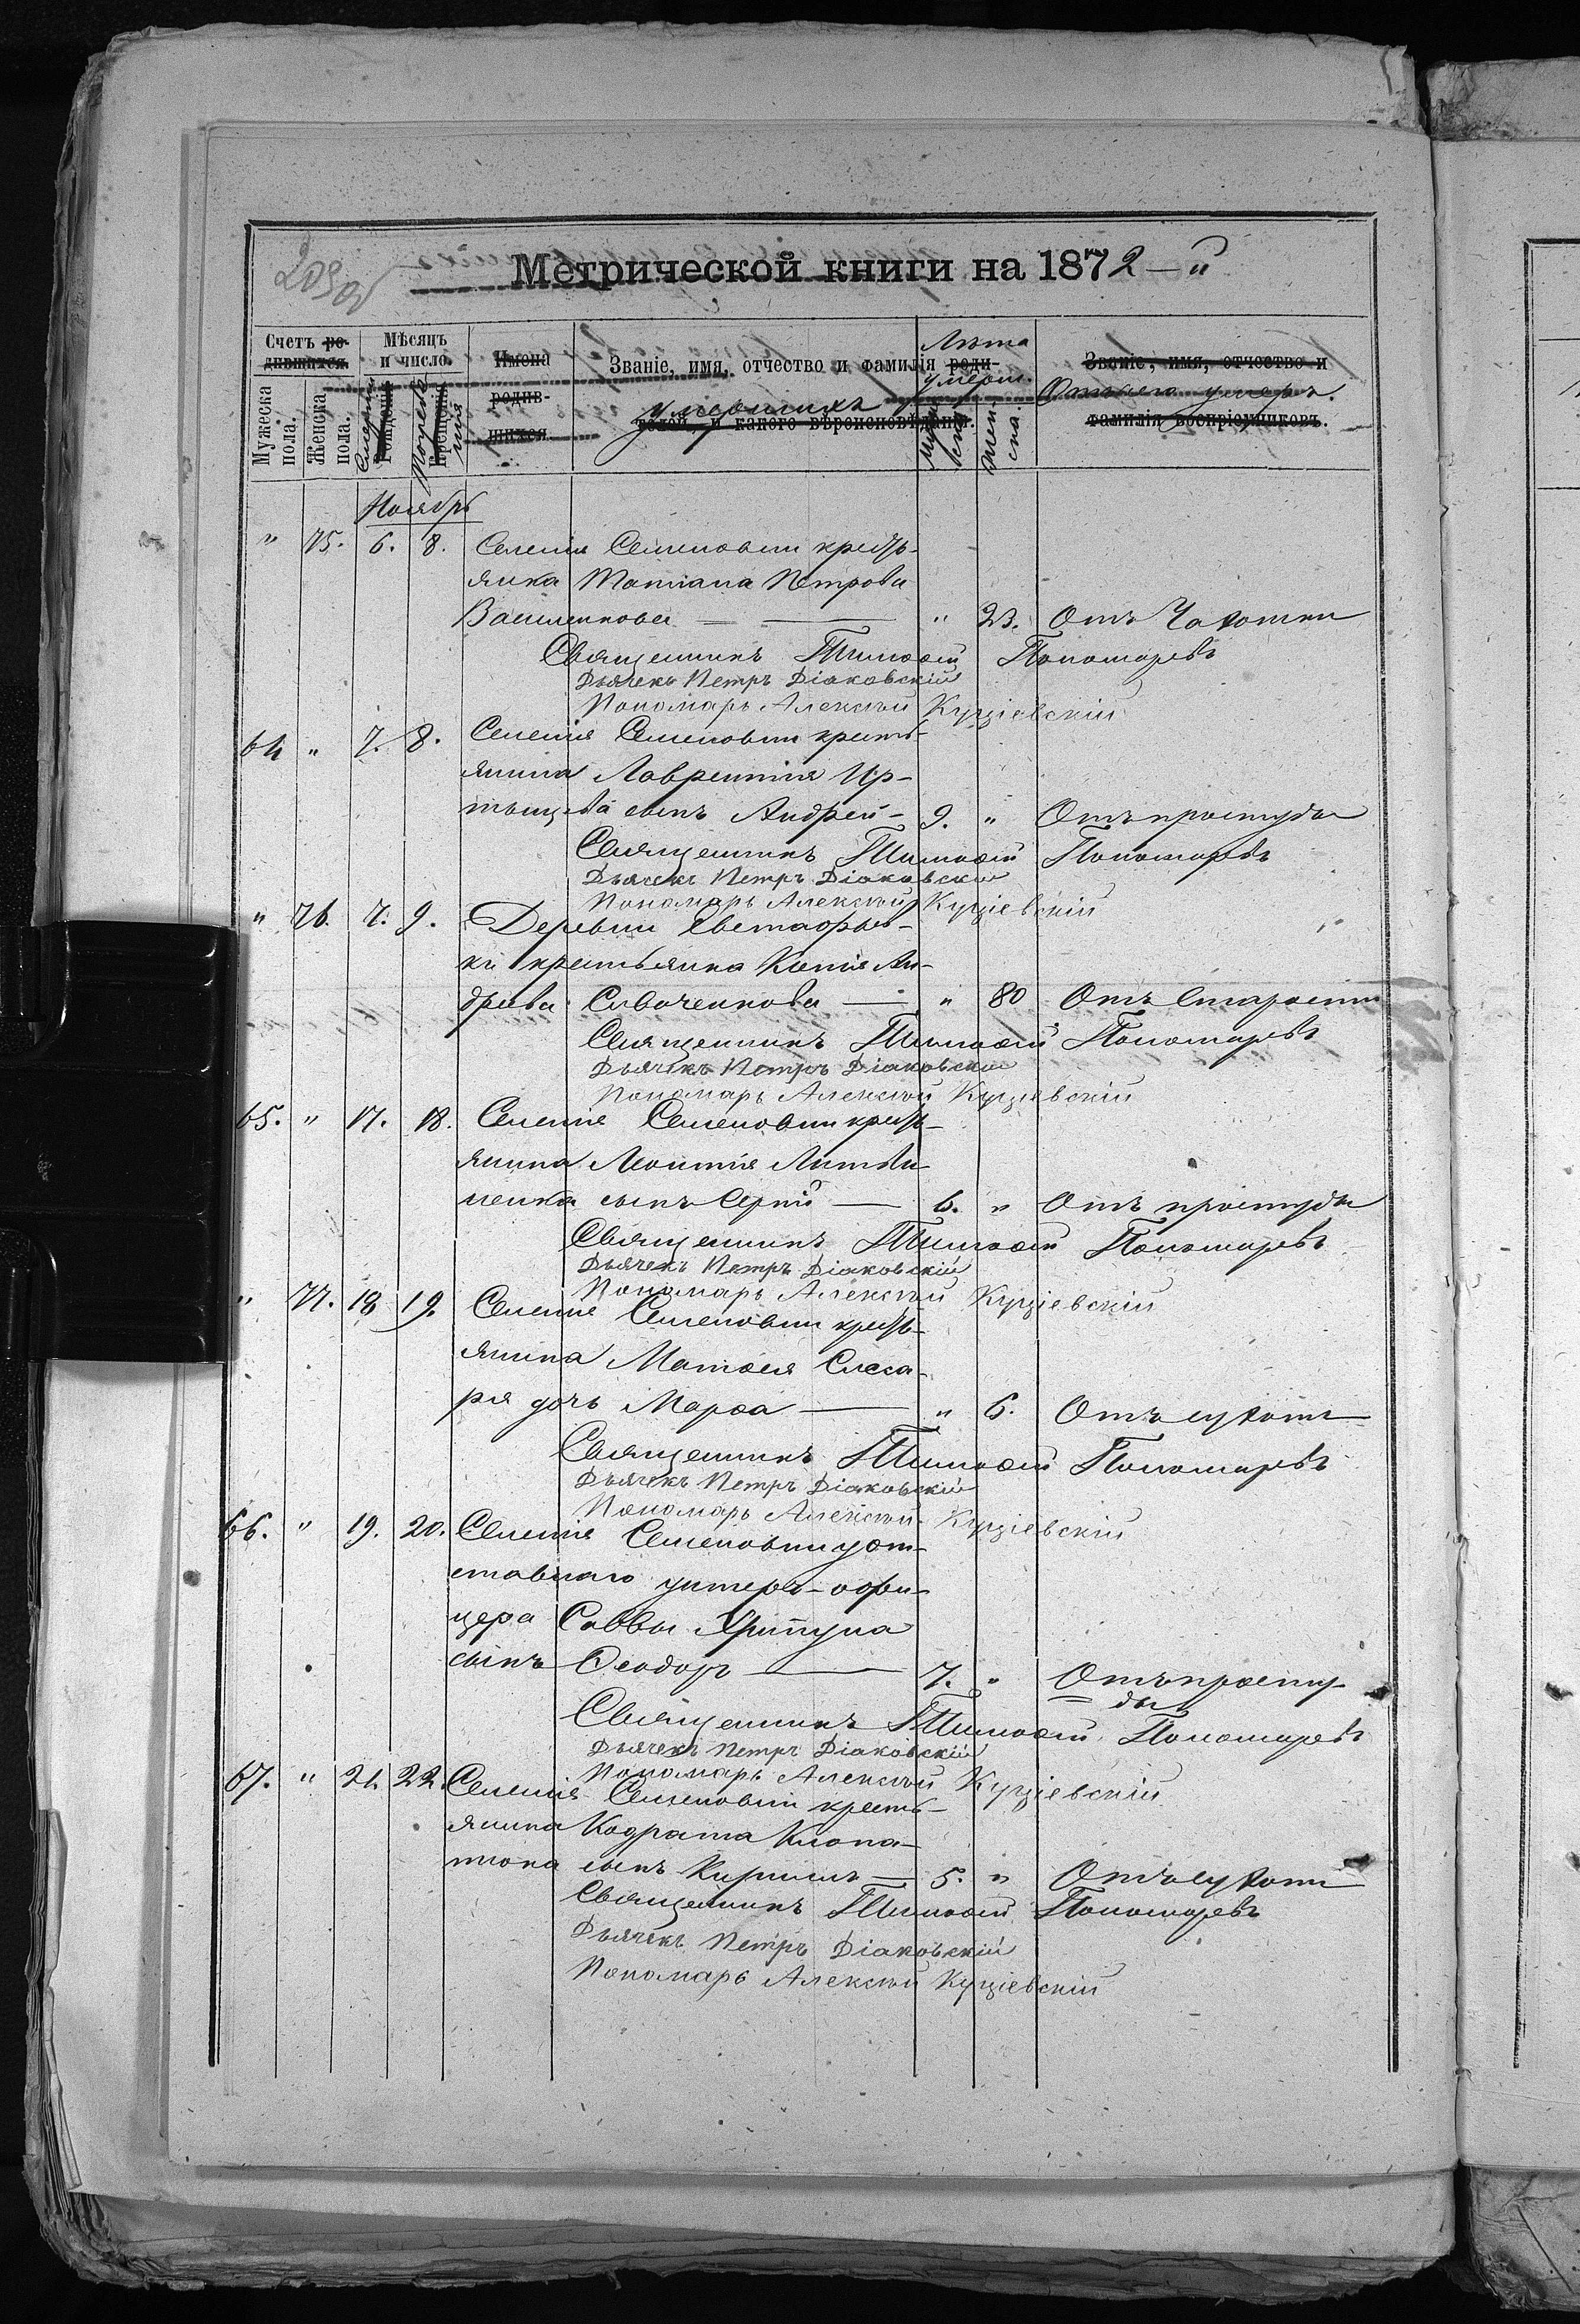 209 об
Метрической книги на 1872-й
Счетъ родившихся.
Мѣсяцъ и число.
Имена родившихся.
Званіе, имя, отчество и фамилія родителей, и какого вѣроисповѣданія.
умершихъ
Лѣта умерш.
Званіе, имя, отчество и фамилія воспріемниковъ.
Отъ чего умеръ.
Мужеска пола.
Женска пола.
Рожденія.
Смерти
Крещенія.
Погребенія
Мужеска
Женска.
Ноябрь
" 75. 6. 8. Селенія Семеновки кресть-
янка Татіана Петрова
Василенкова — " 23. Отъ Чахотки
Священникъ Тимоѳей Пономаревъ
Дьячекъ Петръ Діаковскій
Пономарь Алексѣй Куціевскій
64 " 7. 8. Селенія Семеновки кресть-
янина Лаврентія Ир-
тыщева сынъ Андрей - 9. " Отъ простуды
Священникъ Тимоѳей Пономаревъ
Дьячекъ Петръ Діаковскій
Пономарь Алексѣй Куціевскій
" 76. 7. 9. Деревни
ки крестьянка Ксенія Ан-
дреева Сивоченкова — " 80 Отъ Старости
Священникъ Тимоѳей Пономаревъ
Дьячекъ Петръ Діаковскій
Пономарь Алексѣй Куціевскій
65. " 17. 18. Селенія Семеновки кресть-
янина Леонтія Литви-
ненка сынъ Сергій — 6. " Отъ простуды
Священникъ Тимоѳей Пономаревъ
Дьячекъ Петръ Діаковскій
Пономарь Алексѣй Куціевскій
" 77. 18 19. Селенія Семеновки кресть-
янина Матѳея Слеса-
ря дочь Марѳа — " 6. Отъ сухоти
Священникъ Тимоѳей Пономаревъ
Дьячекъ Петръ Діаковскій
Пономарь Алексѣй Куціевскій
66. " 19. 20. Селенія Семеновки от-
ставнаго унтеръ-офи-
цера Саввы Хрипуна
сынъ Ѳеодоръ — 7. " Отъ просту-
ды
Священникъ Тимоѳей Пономаревъ
Дьячекъ Петръ Діаковскій
Пономарь Алексѣй Куціевскій
67. " 21. 22. Селенія Семеновки кресть-
янина Кодрата Клопа-
тюка сынъ Кириллъ — 5. " Отъ сухоти
Священникъ Тимоѳей Пономаревъ
Дьячекъ Петръ Діаковскій
Пономарь Алексѣй Куціевскій